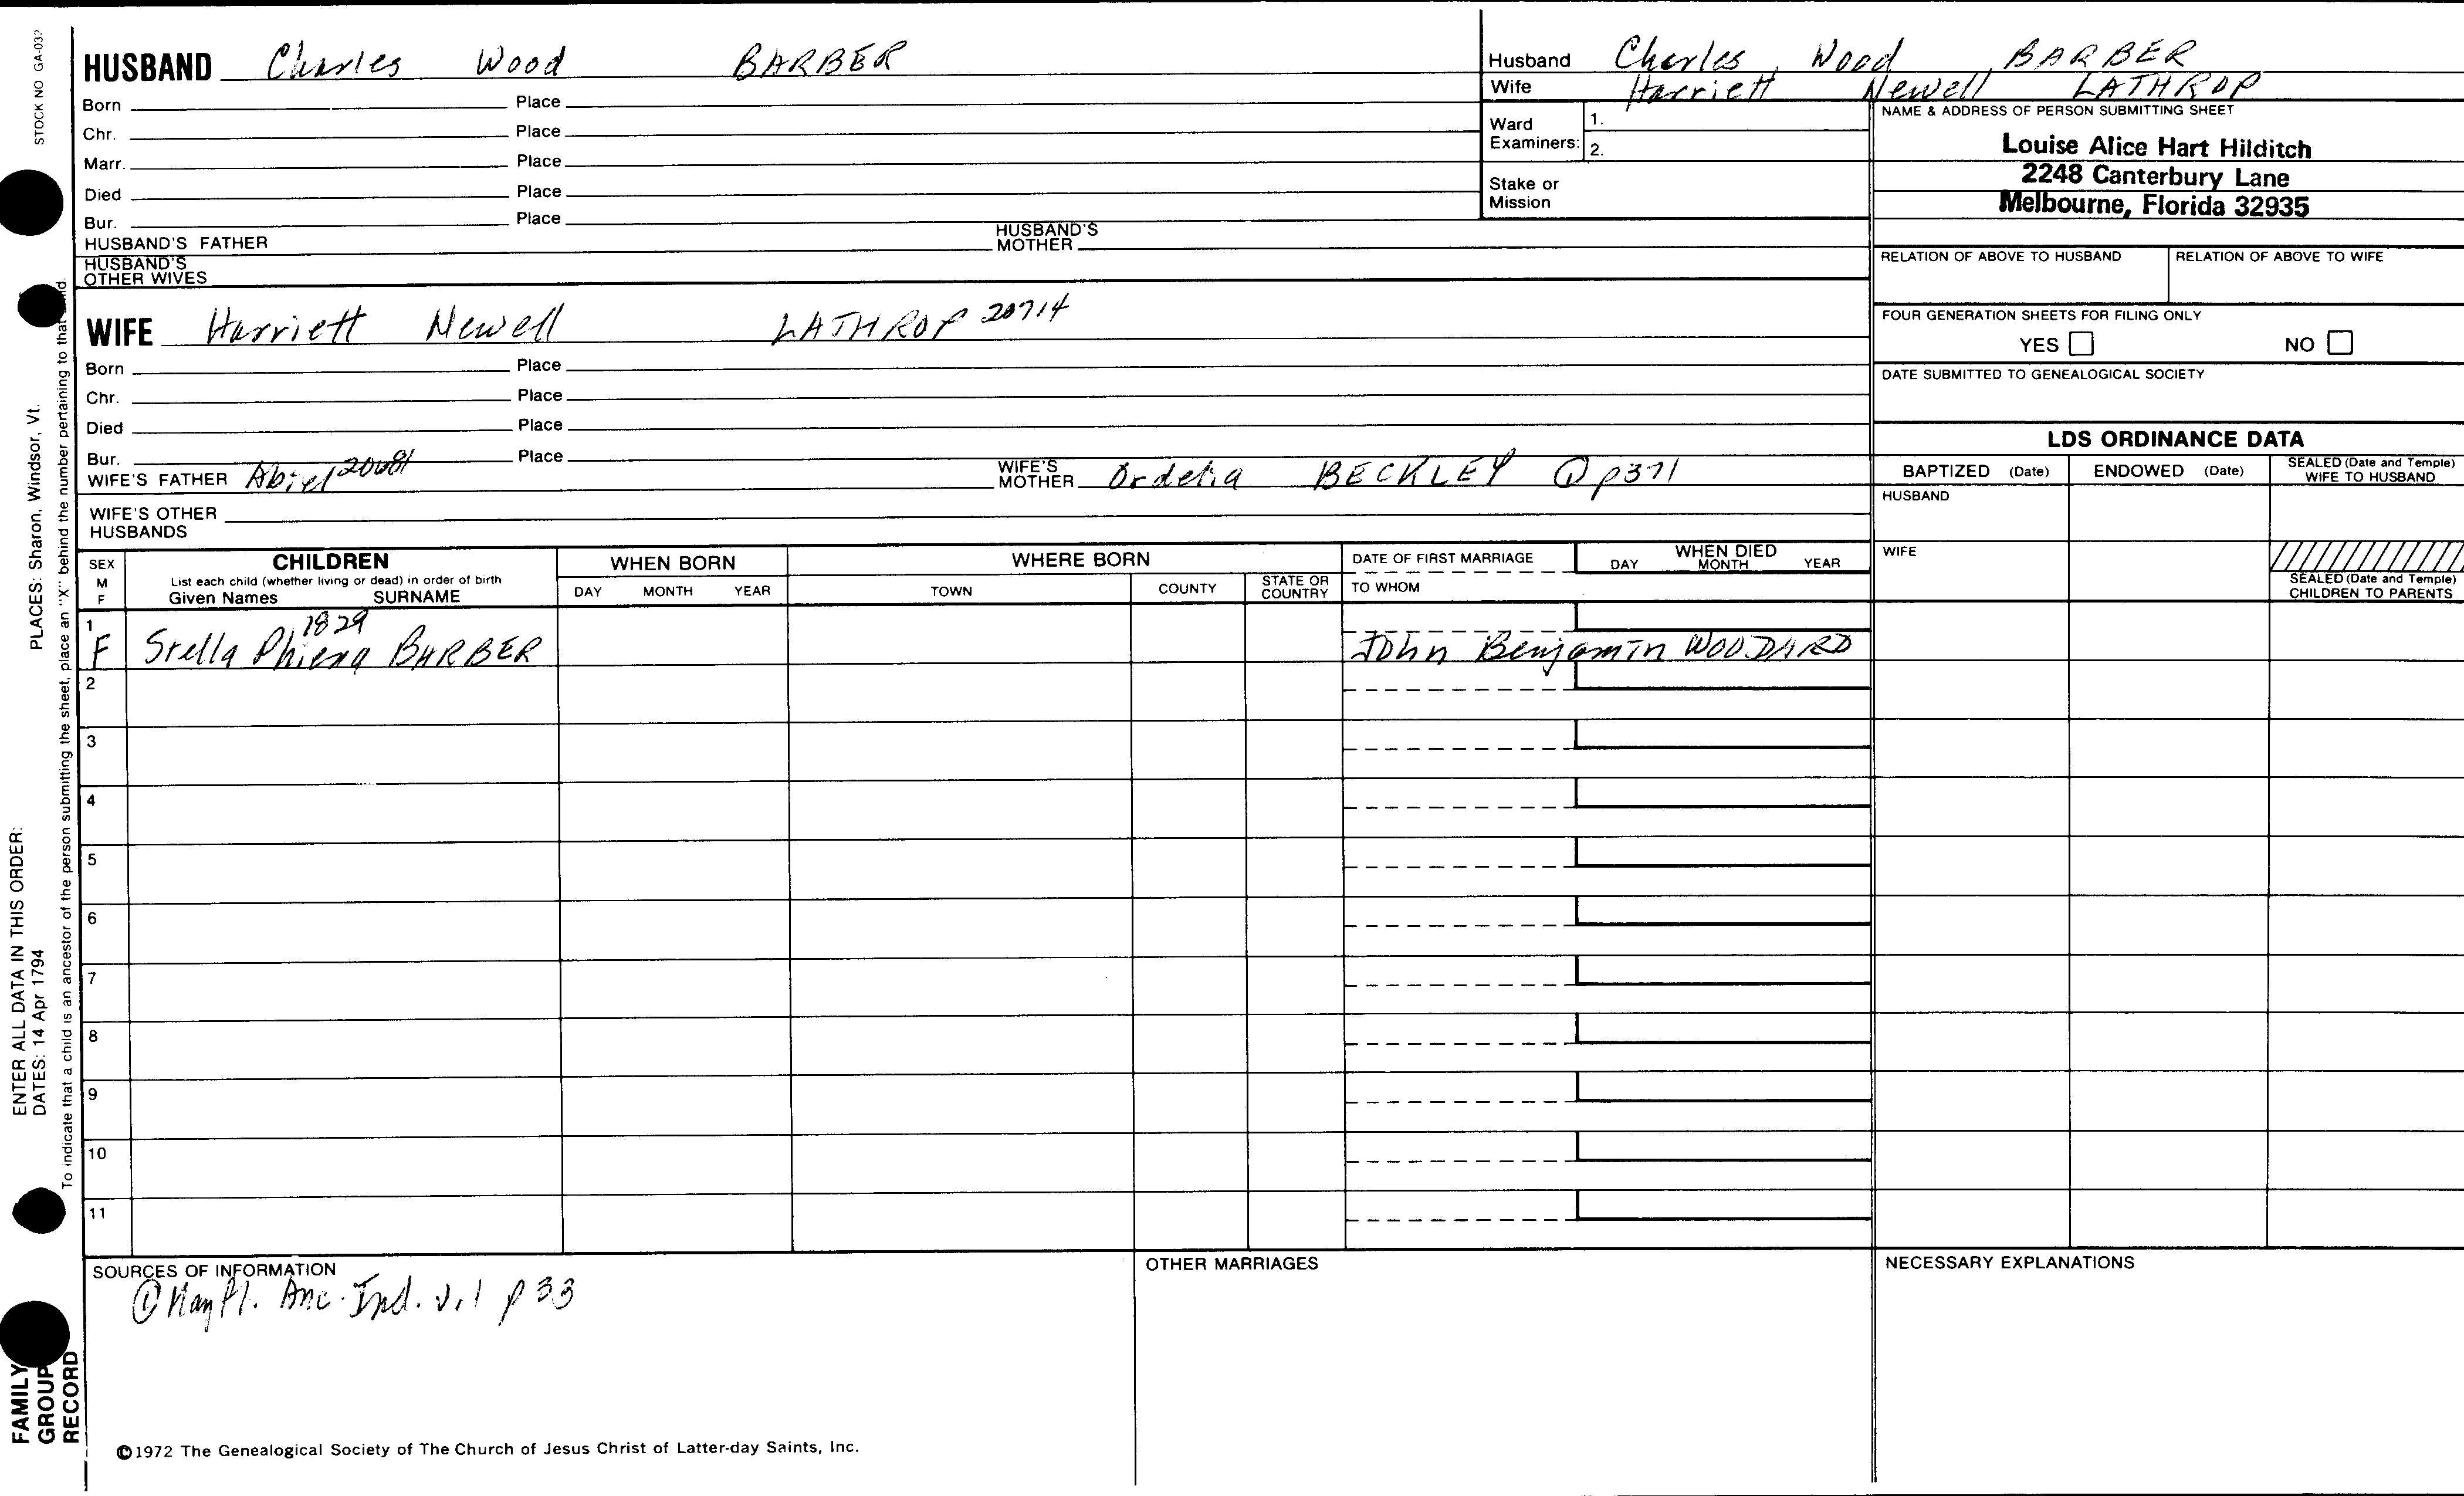 STOCK NO GA-032
HUSBAND Charles Wood BARBER
Born Place
Chr. Place
Marr. Place
Died Place
Bur. Place
HUSBAND'S FATHER HUSBAND'S MOTHER
HUSBAND'S OTHER WIVES
Husband Charles Wood BARBER
Wife Harriett Newell LATHROP
Ward Examiners: 1.
2.
Stake or Mission
NAME & ADDRESS OF PERSON SUBMITTING SHEET
Louise Alice Hart Hilditch
2248 Canterbury Lane
Melbourne, Florida 32935
RELATION OF ABOVE TO HUSBAND RELATION OF ABOVE TO WIFE
FOUR GENERATION SHEETS FOR FILING ONLY
YES NO
DATE SUBMITTED TO GENEALOGICAL SOCIETY
WIFE Harriett Newell LATHROP 20714
Born Place
Chr. Place
Died Place
Bur. Place
WIFE'S FATHER Abiel WIFE'S MOTHER Ordelia BECKLEY ① p371
WIFE'S OTHER HUSBANDS
LDS ORDINANCE DATA
BAPTIZED (Date) ENDOWED (Date) SEALED (Date and Temple) WIFE TO HUSBAND
HUSBAND
WIFE
SEALED (Date and Temple) CHILDREN TO PARENTS
SEX M F
CHILDREN
List each child (whether living or dead) in order of birth
Given Names SURNAME
WHEN BORN
DAY MONTH YEAR
WHERE BORN
TOWN COUNTY STATE OR COUNTRY
DATE OF FIRST MARRIAGE
TO WHOM
WHEN DIED
DAY MONTH YEAR
1829
1 F Stella Phiena BARBER John Benjamin WOODARD
2
3
4
5
6
7
8
9
10
11
SOURCES OF INFORMATION
① Mayfl. Anc. Ind. v.1 p 33
OTHER MARRIAGES
NECESSARY EXPLANATIONS
©1972 The Genealogical Society of The Church of Jesus Christ of Latter-day Saints, Inc.
ENTER ALL DATA IN THIS ORDER:
PLACES: Sharon, Windsor, Vt.
DATES: 14 Apr 1794
To indicate that a child is an ancestor of the person submitting the sheet, place an "X" behind the number pertaining to that
FAMILY
GROUP
RECORD